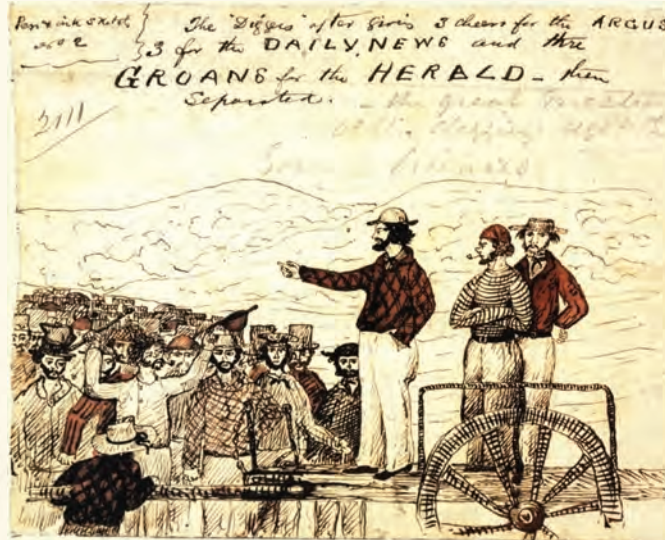 Pen & ink Sketch
No 2
The "Diggers" after givin 3 cheers for the ARGUS
3 for the DAILY NEWS and thre
GROANS for the HERALD - then
Separated. - the great
2111